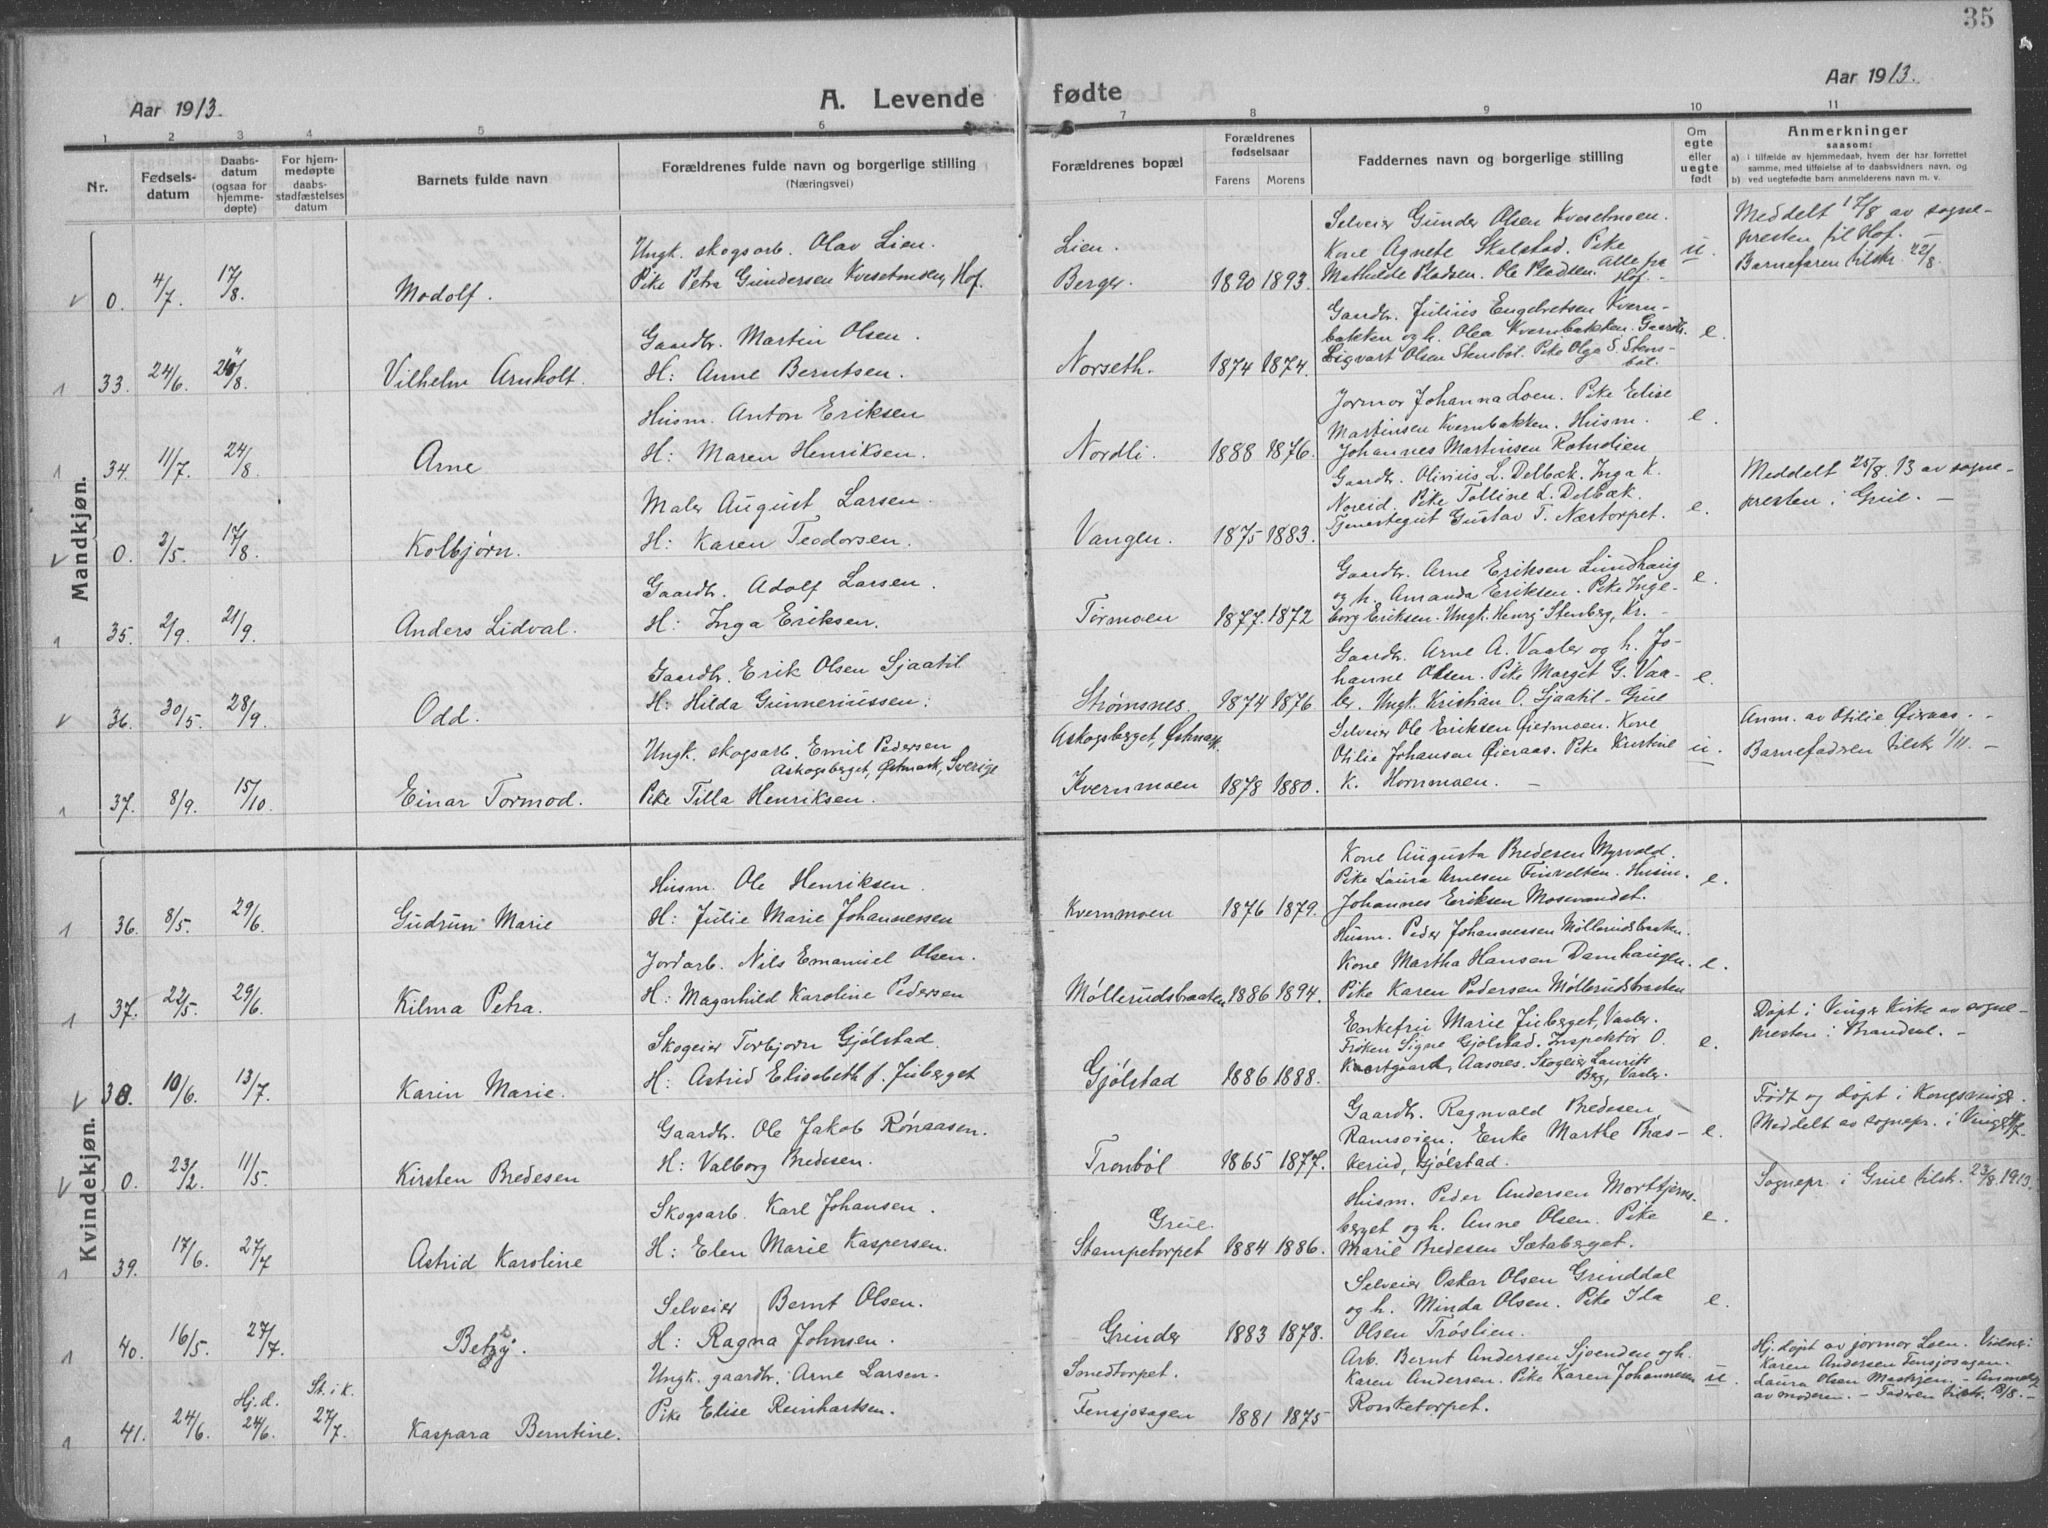 35
Aar 1913.
A. Levende fødte
Aar 1913.
1 2 3 4 5 6 7 8 9 10 11
Nr.
Fødselsdatum
Daabsdatum (ogsaa for hjemmedøpte)
For hjemmedøpte daabsstadfæstelses datum
Barnets fulde navn
Forældrenes fulde navn og borgerlige stilling
(Næringsvei)
Forældrenes bopæl
Forældrenes fødselsaar
Farens Morens
Faddernes navn og borgerlige stilling
Om egte eller uegte født
Anmerkninger
saasom:
a) i tilfælde av hjemmedaab, hvem der har forrettet samme, med tilføielse af to daabsvidners navn, og
b) ved uegtefødte barn anmelderens navn m. v.
Mandkjøn.
0. 4/7 17/8. Modolf.
Ungk. skogsarb. Olav Lien.
Pike Petra Gundersen Kvesetmoen, Hof.
Lien.
Berger. 1890 1893.
Selveier Gunder Olsen Kvesetmoen.
Kone Agnete Skalstad. Pike
Mathilde Pladsen. Ole Pladsen. Alle fra Hof. -
u.
Meddelt 17/8 av sogne-
presten til Hof. -
Barnefaren tilskr. 22/8.
33. 24/6. 24/8. Vilhelm Arnholt.
Gaardbr. Martin Olsen.
H: Anne Berntsen.
Norseth. 1874 1874.
Gaardbr. Julius Engebretsen Kvern-
bakken og h. Olea Kvernbakken. Gaardbr.
Sigvart Olsen Stensbøl. Pike Olga S. Stens-
bøl.
e.
34. 11/7. 24/8 Arne
Husm. Anton Eriksen
H: Maren Henriksen.
Nordli. 1888 1876.
Jormor Johanna Loen. Pike Elise
Martinsen Kvernbakken. Husm.
Johannes Martinsen Rotudien
e.
0. 2/5. 17/8. Kolbjørn.
Maler August Larsen.
H: Karen Teodorsen.
Vangen. 1875 1883.
Gaardbr. Olivius L. Delbæk. Inga K.
Noreid. Pike Tolline L. Delbæk.
Tjenestegut Gustav T. Næstorpet.
e.
Meddelt 25/8. 13 av sogne-
presten i Grue. -
35. 2/9. 21/9. Anders Lidval.
Gaardbr. Adolf Larsen.
H: Inga Eriksen.
Tørmoen 1877. 1872
Gaardbr. Arne Eriksen Lundhaug
og h. Amanda Eriksen. Pike Inge-
borg Eriksen. Ungk. Henry Stenberg, Kr. -
e.
36. 30/5. 28/9. Odd.
Gaardbr. Erik Olsen Sjaatil
H: Hilda Gunneriussen.
Strømsnes. 1874 1876
Gaardbr. Arne A. Vaaler og h. Jo-
hanne Olsen. Pike Margit G. Vaa-
ler. Ungk. Kristian O. Sjaatil - Grue
e.
37. 8/9. 15/10. Einar Tormod.
Ungk. skogsarb. Emil Pedersen
Askogsberget, Østmark, Sverige
Pike Tilla Henriksen.
Askogsberget, Østmark.
Kvernmoen 1878 1880.
Selveier Ole Eriksen Øiermoen. Kone
Otilie Johansen Øieraas. Pike Kristine
K. Hornmoen. -
u.
Anm. av Otilie Øieraas. -
Barnefaderen tilskr. 1/11. -
Kvindekjøn.
36. 8/5. 29/6. Gudrun Marie
Husm. Ole Henriksen.
H: Julie Marie Johannessen
Kvernmoen 1876 1879.
Kone Augusta Bredesen Myrvold.
Pike Laura Arnesen Finvelten. Husm.
Johannes Eriksen Mosevandet.
e.
37. 22/5. 29/6. Kilma Petra.
Jordarb. Nils Emanuel Olsen.
H: Magnhild Karoline Pedersen
Møllerudsbraaten 1886 1894.
Husm. Peder Johannessen Møllerudsbraaten.
Kone Martha Hansen Damhaugen.
Pike Karen Pedersen Møllerudsbraaten
e.
38. 10/6. 13/7. Karin Marie.
Skogeier Torbjørn Gjølstad.
H: Astrid Elisabeth f. Juberget
Gjølstad 1886 1888.
Enkefru Marie Juberget, Vaaler.
Frøken Signe Gjølstad. Inspektør O.
Kortgaard, Aasnes. Skogeier Laurits
Berg, Vaaler.
e.
Døpt i Vinger Kirke av sogne-
presten i Brandval. -
0. 23/2. 11/5. Kirsten Bredesen
Gaardbr. Ole Jakob Rønaasen.
H: Valborg Bredesen.
Tronbøl 1865 1877.
Gaardbr. Ragnvald Bredesen
Ramsøien. Enke Marthe Bras-
kerud, Gjølstad.
e.
Født og døpt i Kongsvinger.
Meddelt av sognepr. i Vinger
39. 17/6. 27/7 Astrid Karoline
Skogsarb. Karl Johansen.
H: Elen Marie Kaspersen.
Grue.
Stampetorpet 1884 1886.
Husm. Peder Andersen Mortkjerns-
berget og h. Anne Olsen. Pike
Marie Bredesen Sætaberget.
e.
Sognepr. i Grue tilskr. 23/8. 1913.
40. 16/5. 27/7. Betzy.
Selveier Bernt Olsen.
H: Ragna Johnsen.
Grinder 1883 1878.
Selveier Oskar Olsen Grinddal
og h. Minda Olsen. Pike Ida
Olsen Trøslien.
e.
41. 24/6. Hj. d. 24/6. St. i k. 27/7. Kaspara Berntine.
Ungk. gaardbr. Arne Larsen.
Pike Elise Reinhartsen.
Smedtorpet.
Tensjosagen 1881 1875
Arb. Bernt Andersen Sjoenden og h.
Karen Andersen. Pike Karen Johannesen
Ronketorpet.
u.
Hj. døpt av jormor Loen. Vidner:
Karen Andersen Tensjosagen.
Laura Olsen Maskjen. - Anmeldt
av moderen. - Faderen tilskr. 13/8. -